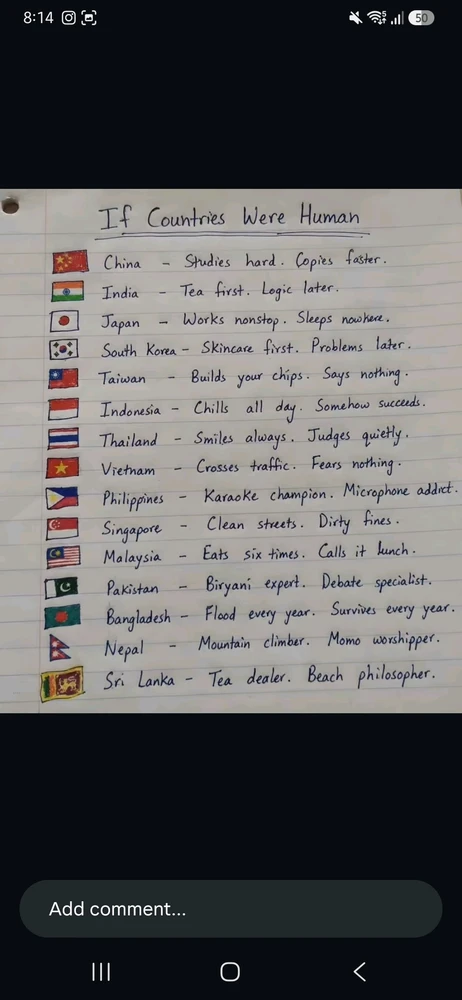 8:14
50
If Countries Were Human
China – Studies hard. Copies faster.
India – Tea first. Logic later.
Japan – Works nonstop. Sleeps nowhere.
South Korea – Skincare first. Problems later.
Taiwan – Builds your chips. Says nothing.
Indonesia – Chills all day. Somehow succeeds.
Thailand – Smiles always. Judges quietly.
Vietnam – Crosses traffic. Fears nothing.
Philippines – Karaoke champion. Microphone addict.
Singapore – Clean streets. Dirty fines.
Malaysia – Eats six times. Calls it lunch.
Pakistan – Biryani expert. Debate specialist.
Bangladesh – Flood every year. Survives every year.
Nepal – Mountain climber. Momo worshipper.
Sri Lanka – Tea dealer. Beach philosopher.
Add comment...